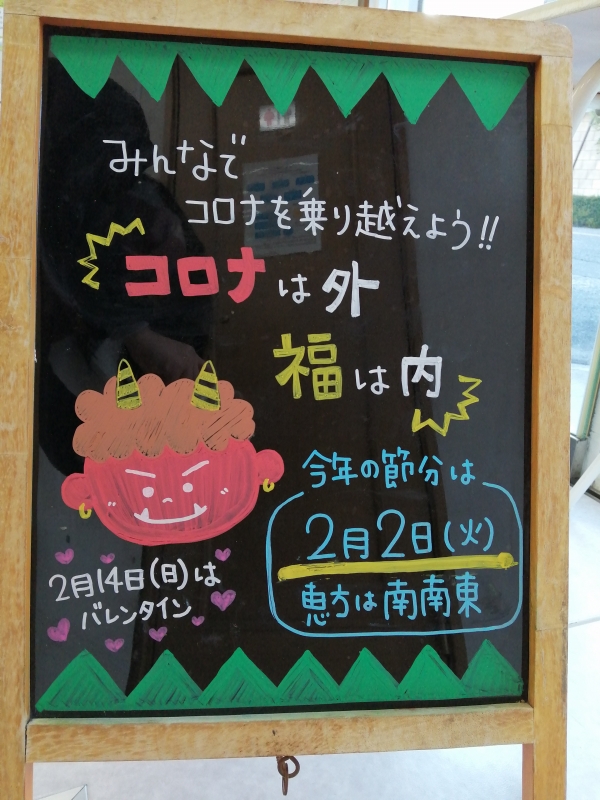 みんなで
コロナを乗り越えよう!!
コロナは外
福は内
今年の節分は
2月2日(火)
恵方は南南東
2月14日(日)は
バレンタイン